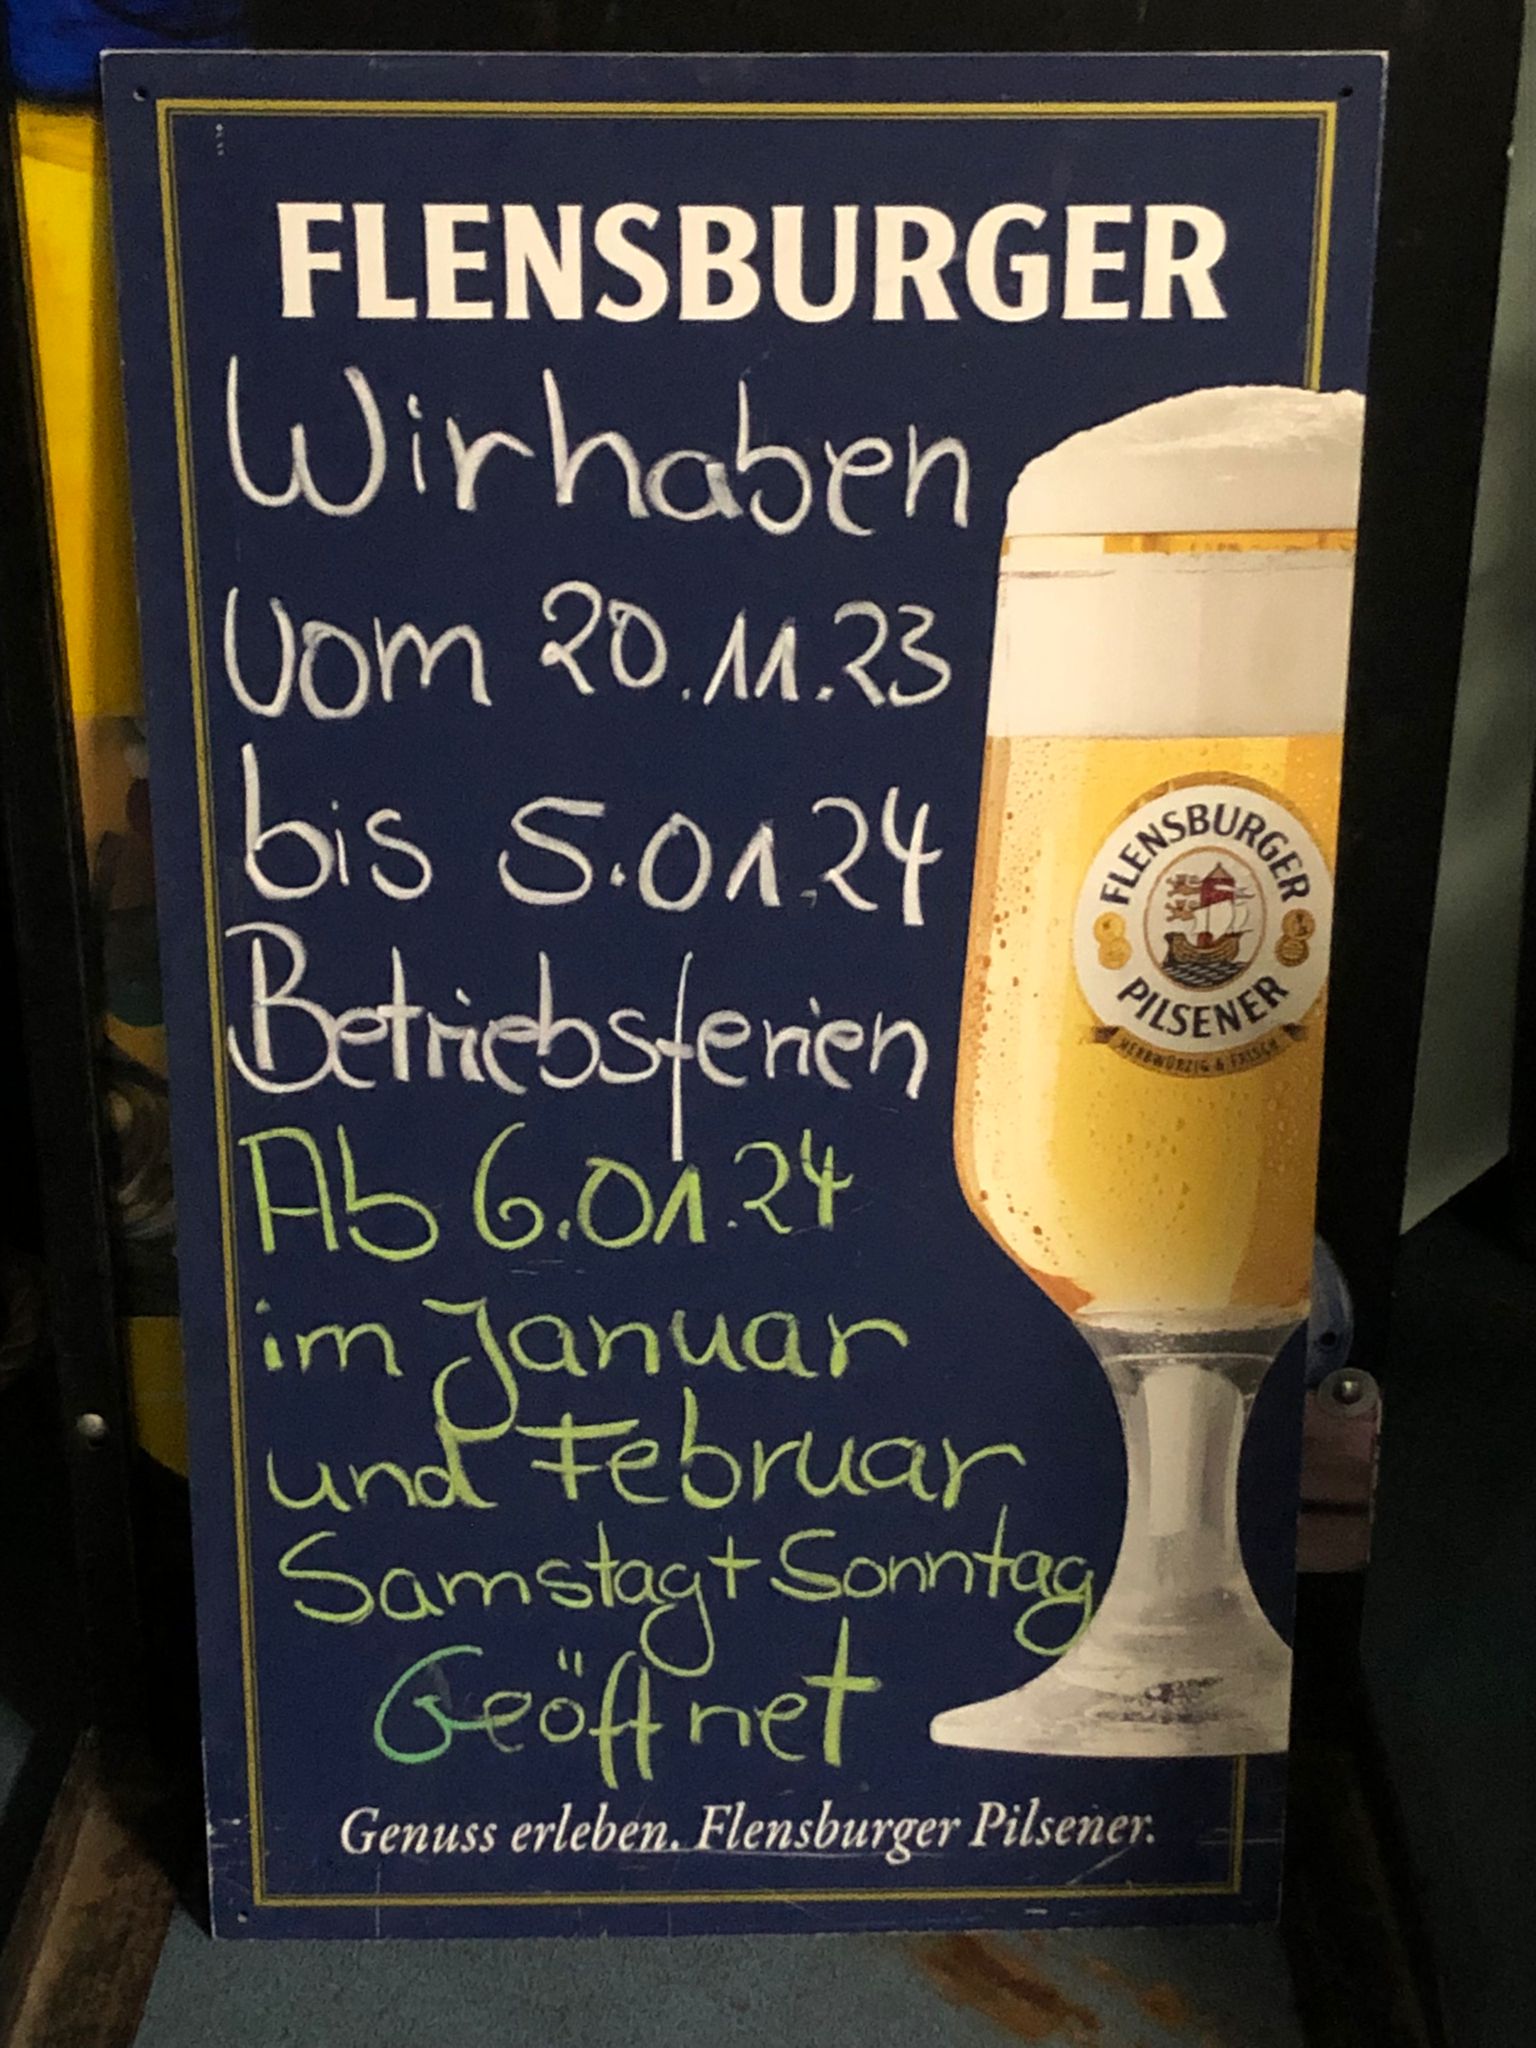 FLENSBURGER
Wir haben
vom 20.11.23
bis 5.01.24
Betriebsferien
Ab 6.01.24
im Januar
und Februar
Samstag + Sonntag
Geöffnet
Genuss erleben. Flensburger Pilsener.
FLENSBURGER
PILSENER
HERBWÜRZIG & FRISCH